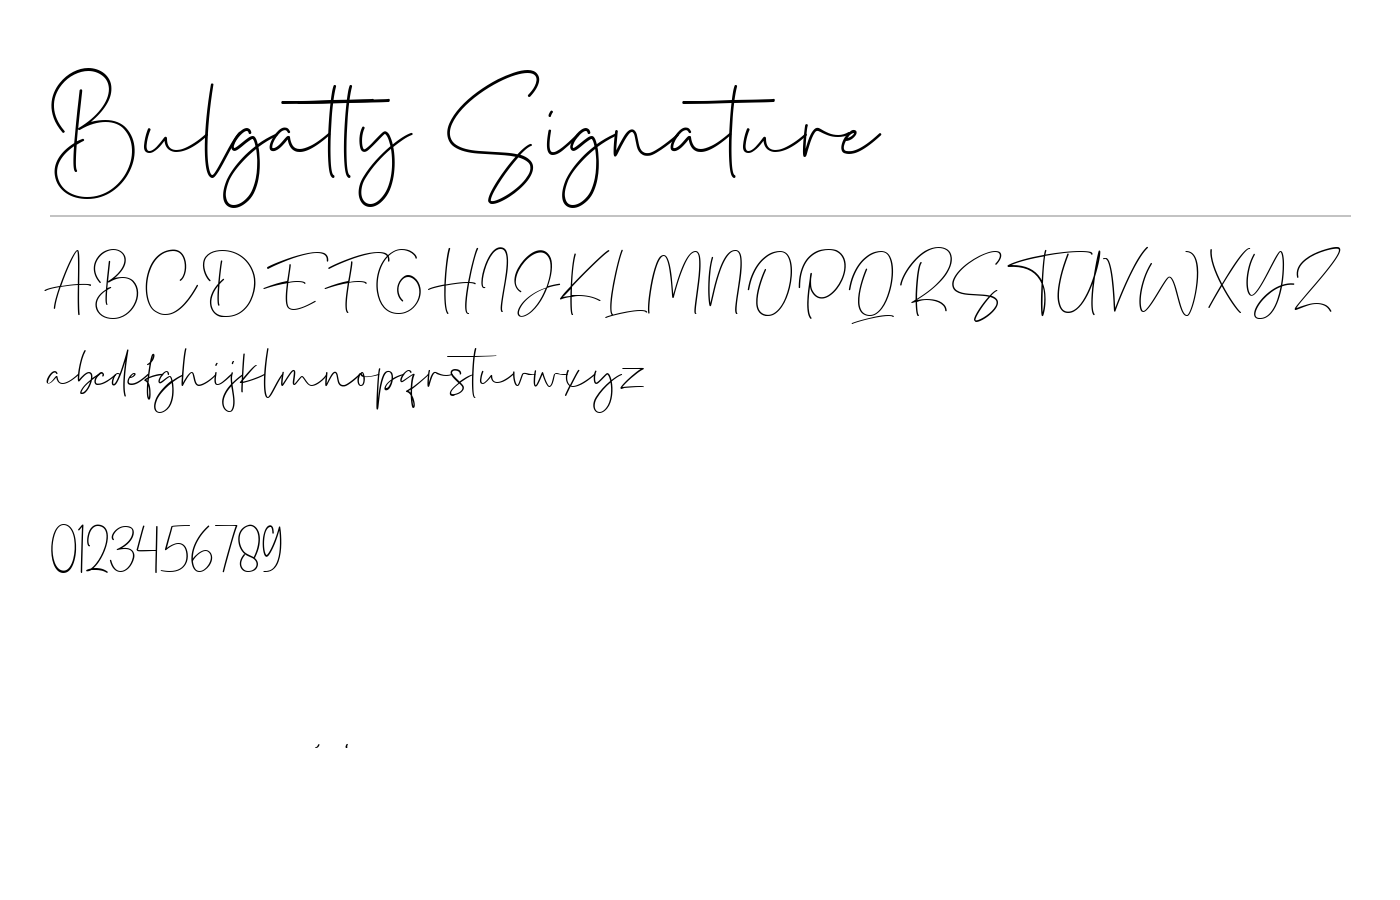 Bulgatty Signature
ABCDEFGHIJKLMNOPQRSTUVWXYZ
abcdefghijklmnopqrstuvwxyz
0123456789